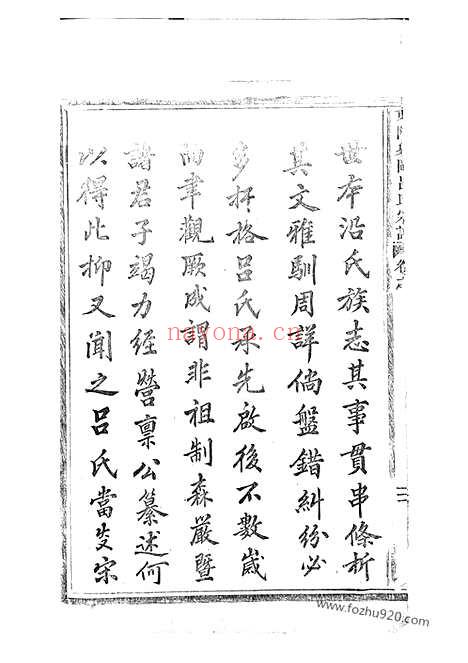 世本沿氏族志其事貫串條析
其文雅馴周詳倘盤錯糾紛必
多扞格呂氏承先啟後不數歲
而聿觀厥成詢非祖制森嚴暨
諸君子竭力經營稟公纂述何
以得此抑又聞之呂氏當炎宋
nayona.cn
www.fozhu920.com